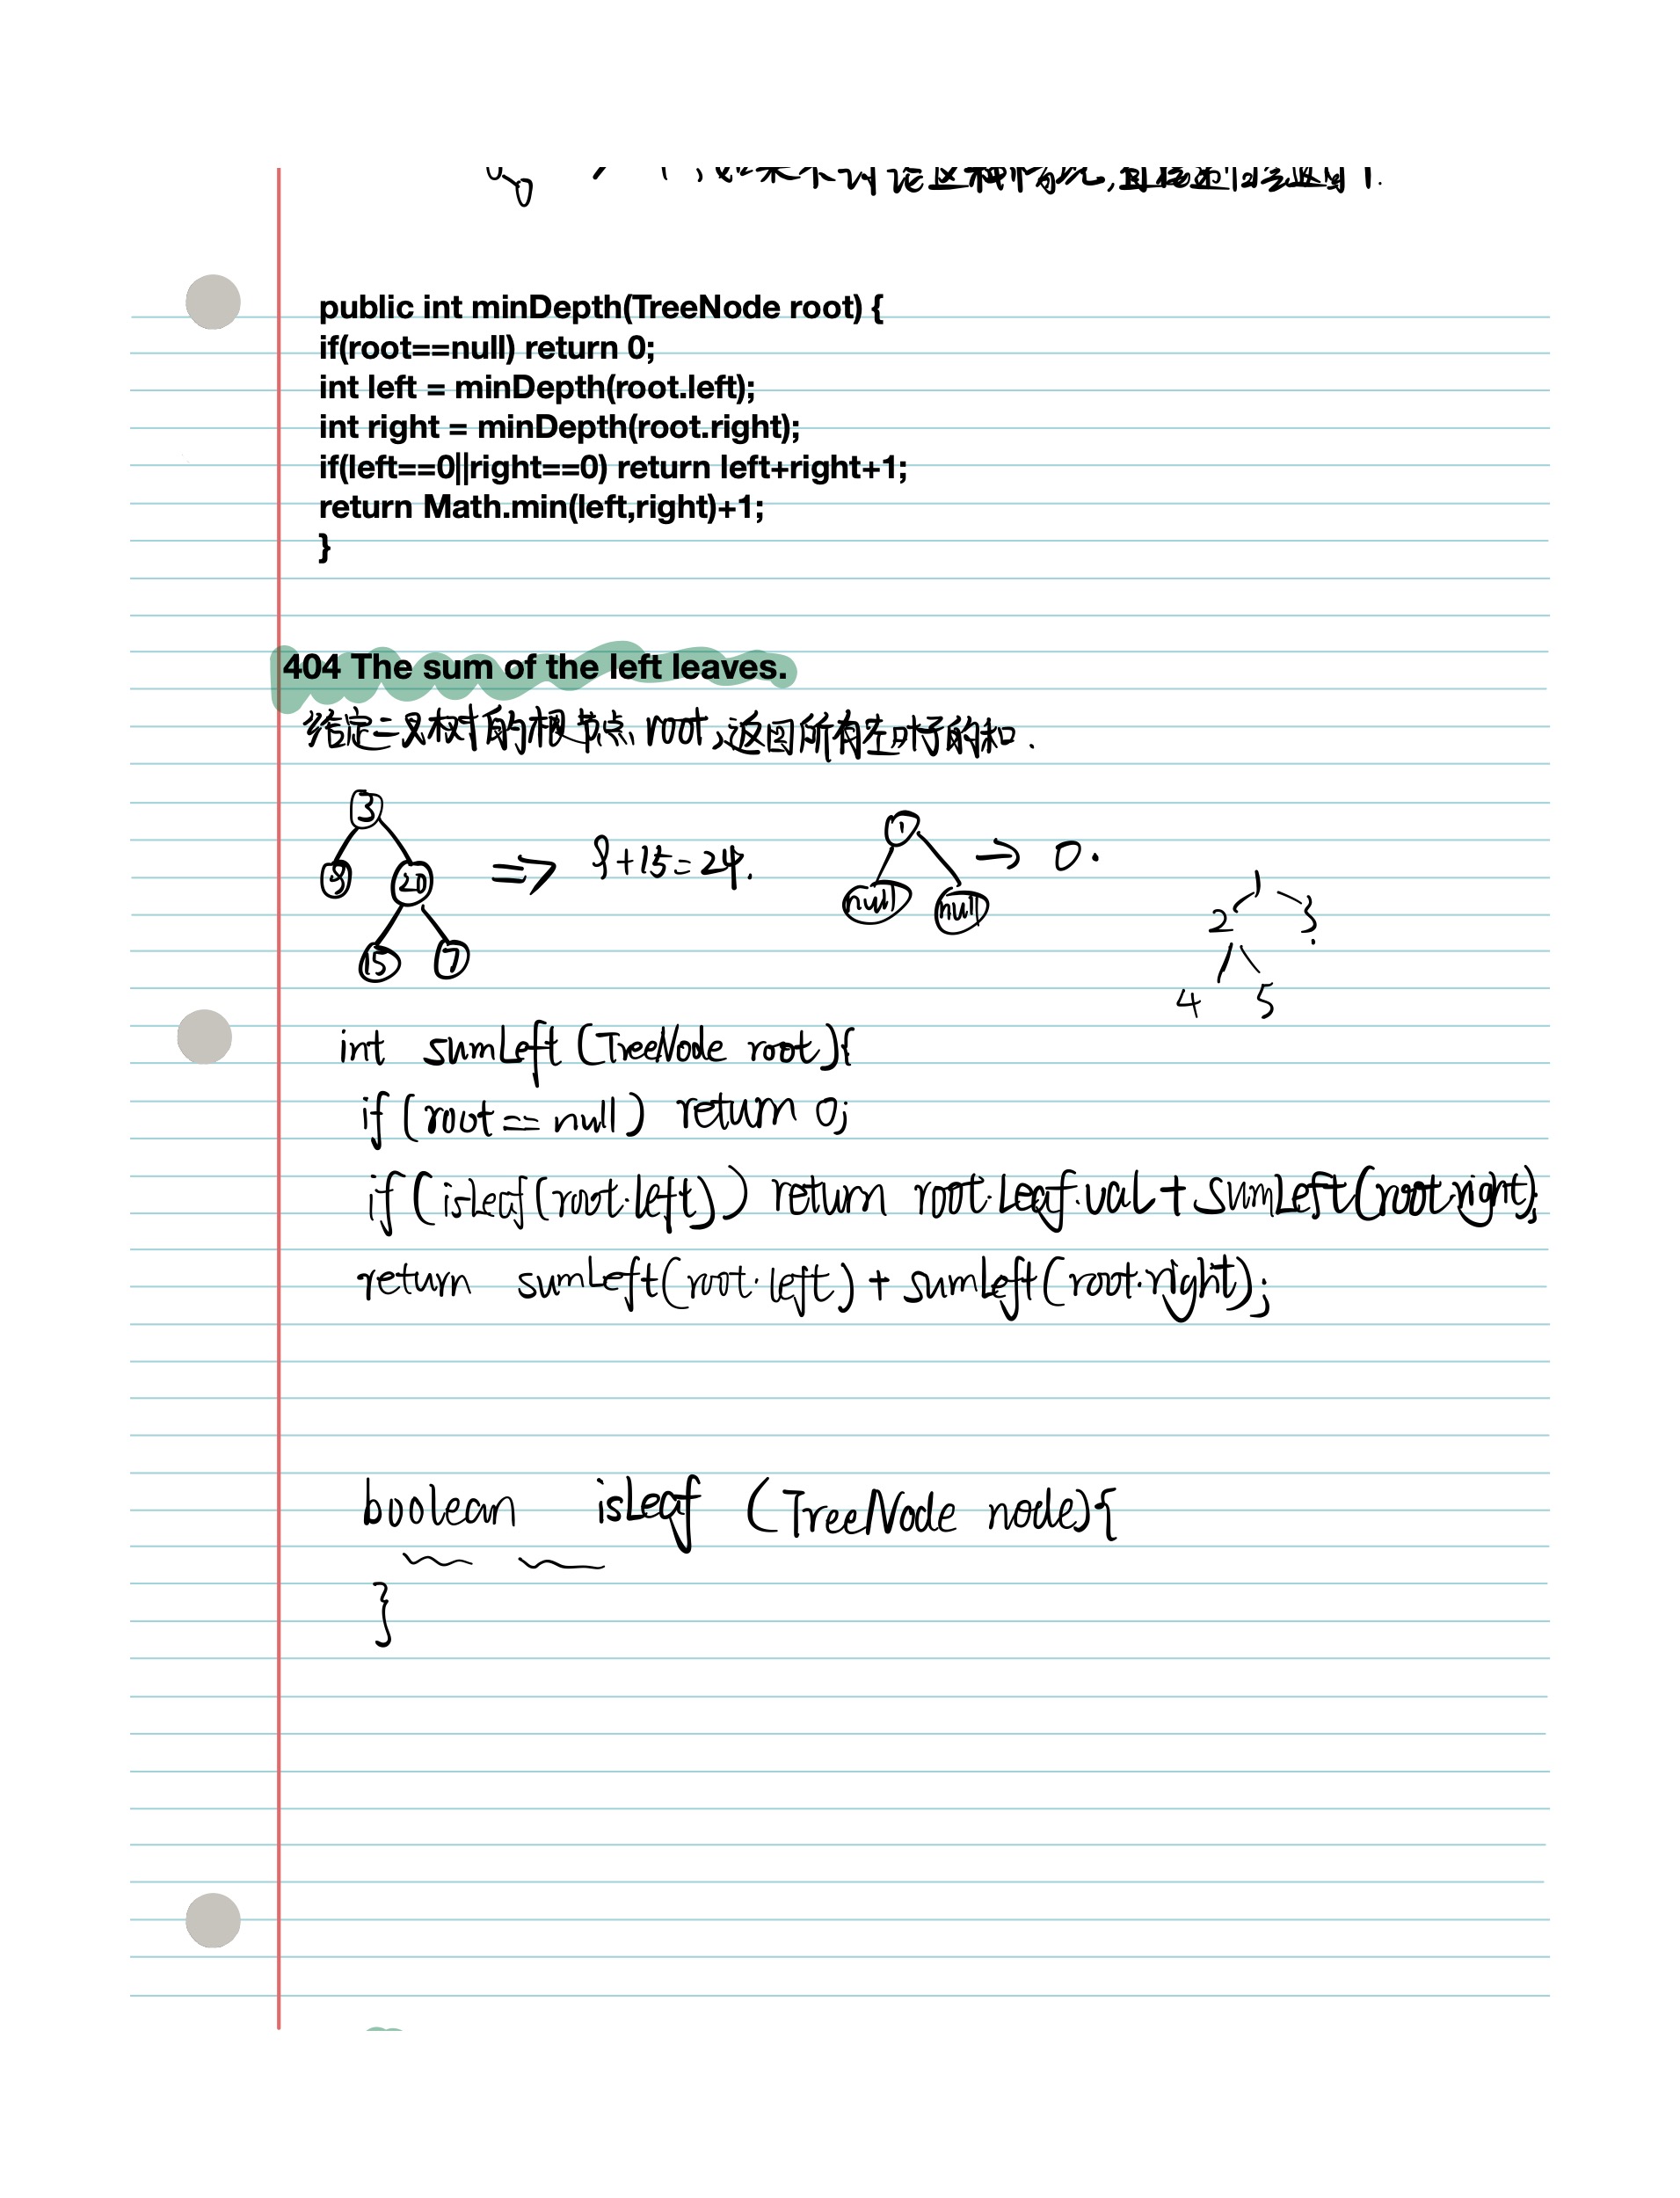 public int minDepth(TreeNode root) {
if(root==null) return 0;
int left = minDepth(root.left);
int right = minDepth(root.right);
if(left==0||right==0) return left+right+1;
return Math.min(left,right)+1;
}
404 The sum of the left leaves.
给定二叉树的根节点 root,返回所有左叶子的和.
3
9 20 => 9+15=24.
15 7
1 → 0.
null null
1
2 3
4 5
int sumLeft (TreeNode root){
if (root == null) return 0;
if (isLeaf(root.left)) return root.Leaf.val + sumLeft(root.right);
return sumLeft(root.left) + sumLeft(root.right);
boolean isLeaf (TreeNode node){
}